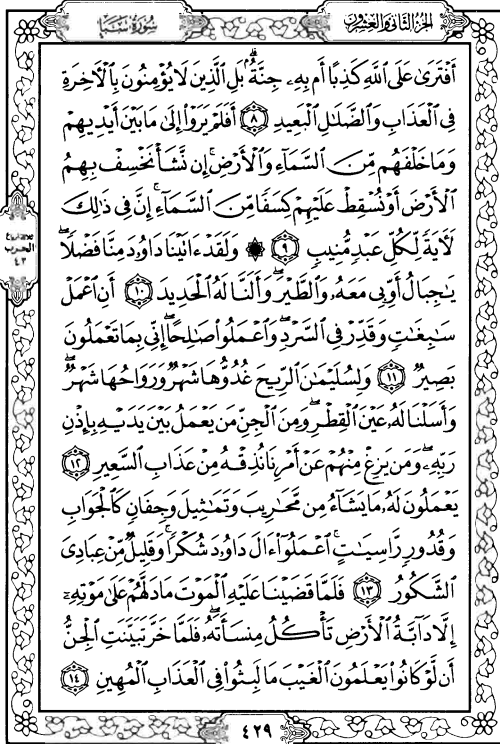 سُورَةُ سَبَإٍ
الجُزْءُ الثَّانِي وَالعِشْرُونَ
أَفْتَرَىٰ عَلَى ٱللَّهِ كَذِبًا أَم بِهِۦ جِنَّةُۢۗ بَلِ ٱلَّذِينَ لَا يُؤْمِنُونَ بِٱلْأَخِرَةِ
فِي ٱلْعَذَابِ وَٱلضَّلَٰلِ ٱلْبَعِيدِ ٨ أَفَلَمْ يَرَوْا۟ إِلَىٰ مَا بَيْنَ أَيْدِيهِمْ
وَمَا خَلْفَهُم مِّنَ ٱلسَّمَآءِ وَٱلْأَرْضِۚ إِن نَّشَأْ نَخْسِفْ بِهِمُ
ٱلْأَرْضَ أَوْ نُسْقِطْ عَلَيْهِمْ كِسَفًا مِّنَ ٱلسَّمَآءِۚ إِنَّ فِي ذَٰلِكَ
لَأٓيَةً لِّكُلِّ عَبْدٍ مُّنِيبٍ ٩ ۞ وَلَقَدْ ءَاتَيْنَا دَاوُۥدَ مِنَّا فَضْلًاۖ
يَٰجِبَالُ أَوِّبِي مَعَهُۥ وَٱلطَّيْرَۖ وَأَلَنَّا لَهُ ٱلْحَدِيدَ ١٠ أَنِ ٱعْمَلْ
سَٰبِغَٰتٍ وَقَدِّرْ فِي ٱلسَّرْدِۖ وَٱعْمَلُوا۟ صَٰلِحًاۖ إِنِّي بِمَا تَعْمَلُونَ
بَصِيرٌ ١١ وَلِسُلَيْمَٰنَ ٱلرِّيحَ غُدُوُّهَا شَهْرٌ وَرَوَاحُهَا شَهْرٌۖ
وَأَسَلْنَا لَهُۥ عَيْنَ ٱلْقِطْرِۖ وَمِنَ ٱلْجِنِّ مَن يَعْمَلُ بَيْنَ يَدَيْهِ بِإِذْنِ
رَبِّهِۦۖ وَمَن يَزِغْ مِنْهُمْ عَنْ أَمْرِنَا نُذِقْهُ مِنْ عَذَابِ ٱلسَّعِيرِ ١٢
يَعْمَلُونَ لَهُۥ مَا يَشَآءُ مِن مَّحَٰرِيبَ وَتَمَٰثِيلَ وَجِفَانٍ كَٱلْجَوَابِ
وَقُدُورٍ رَّاسِيَٰتٍۚ ٱعْمَلُوٓا۟ ءَالَ دَاوُۥدَ شُكْرًاۚ وَقَلِيلٌ مِّنْ عِبَادِيَ
ٱلشَّكُورُ ١٣ فَلَمَّا قَضَيْنَا عَلَيْهِ ٱلْمَوْتَ مَا دَلَّهُمْ عَلَىٰ مَوْتِهِۦٓ
إِلَّا دَآبَّةُ ٱلْأَرْضِ تَأْكُلُ مِنسَأَتَهُۥۖ فَلَمَّا خَرَّ تَبَيَّنَتِ ٱلْجِنُّ
أَن لَّوْ كَانُوا۟ يَعْلَمُونَ ٱلْغَيْبَ مَا لَبِثُوا۟ فِي ٱلْعَذَابِ ٱلْمُهِينِ ١٤
الحزب
٤٣
٤٢٩